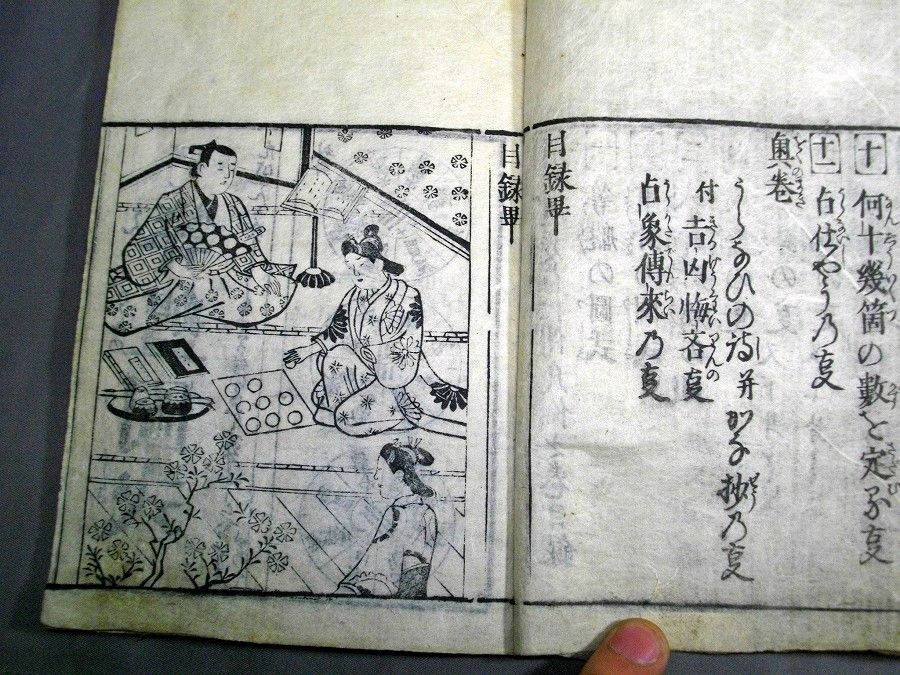 十 何十幾箇の數を定る叓
十一 占仕やう乃叓
奥巻
うらなひの詩并かな抄乃叓
付 吉凶悔吝叓
占象傳來乃叓
目録畢
目録畢